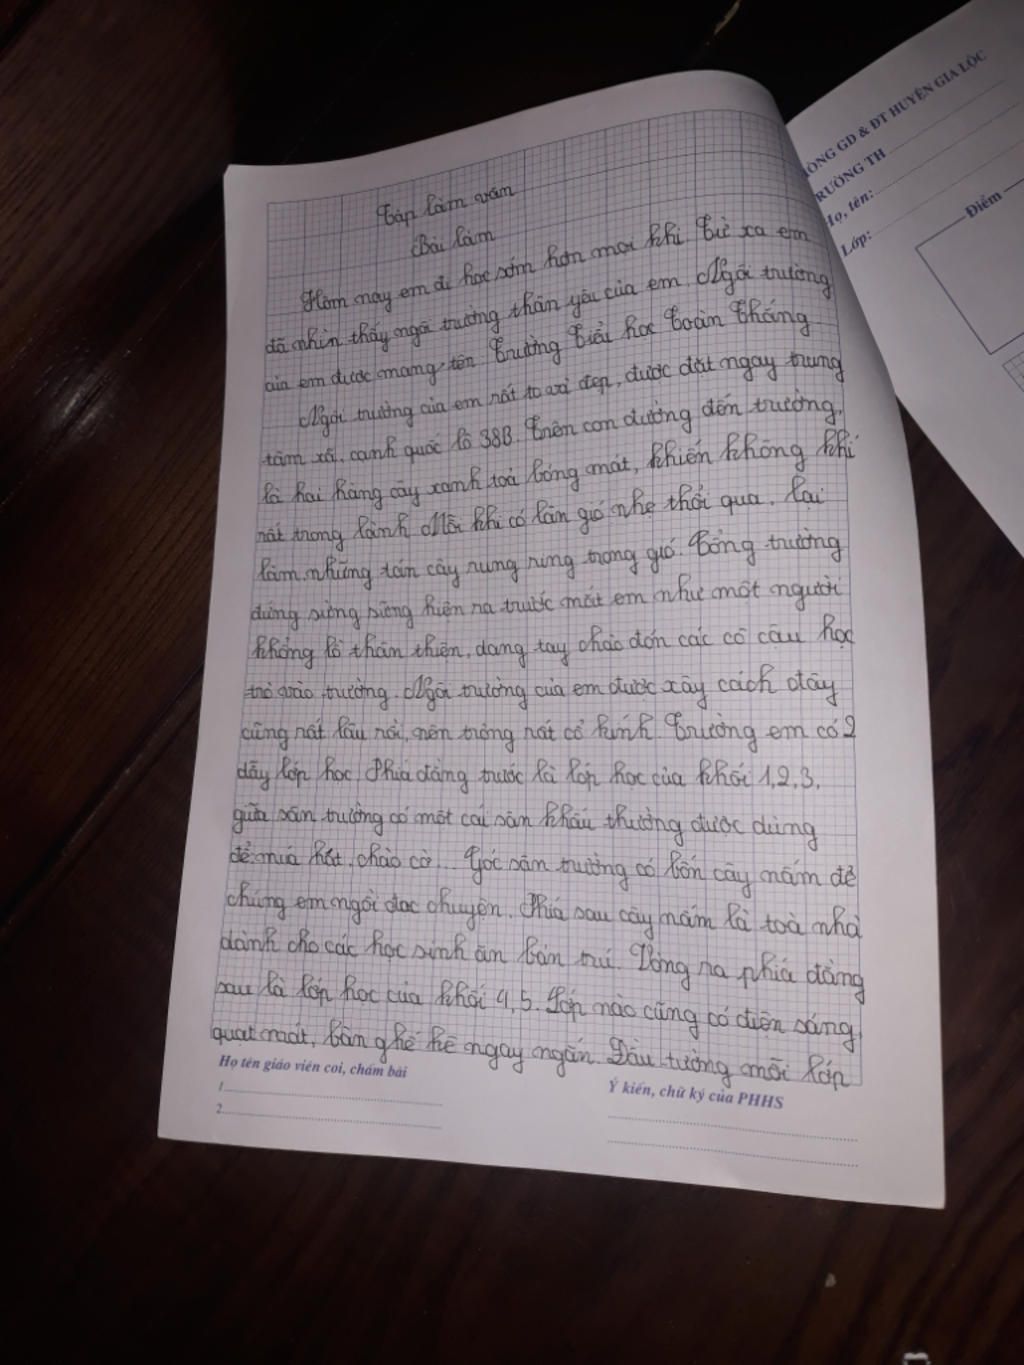 Tập làm văn
Bài làm
Hôm nay em đi học sớm hơn mọi khi. Từ xa em
đã nhìn thấy ngôi trường thân yêu của em. Ngôi trường
của em được mang tên Trường Tiểu học Toàn Thắng
Ngôi trường của em rất to và đẹp, được đặt ngay trung
tâm xã, cạnh quốc lộ 38B. Trên con đường đến trường,
là hai hàng cây xanh toả bóng mát, khiến không khí
rất trong lành. Mỗi khi có làn gió nhẹ thổi qua. Lại
làm những tán cây rung rung trong gió. Cổng trường
đứng sừng sững hiện ra trước mắt em như một người
khổng lồ thân thiện, dang tay chào đón các cô cậu học
trò vào trường. Ngôi trường của em được xây cách đây
cũng rất lâu rồi, nên trông rất cổ kính. Trường em có 2
dãy lớp học. Phía đằng trước là lớp học của khối 1,2,3,
giữa sân trường có một cái sân khấu thường được dùng
để múa hát, chào cờ... Góc sân trường có bốn cây nấm để
chúng em ngồi đọc chuyện. Phía sau cây nấm là toà nhà
dành cho các học sinh ăn bán trú. Vòng ra phía đằng
sau là lớp học của khối 4,5. Lớp nào cũng có điện sáng,
quạt mát, bàn ghế kê ngay ngắn. Đầu tường mỗi lớp
Họ tên giáo viên coi, chấm bài
1
2
Ý kiến, chữ ký của PHHS
PHÒNG GD & ĐT HUYỆN GIA LỘC
TRƯỜNG TH
Họ, tên:
Lớp:
Điểm